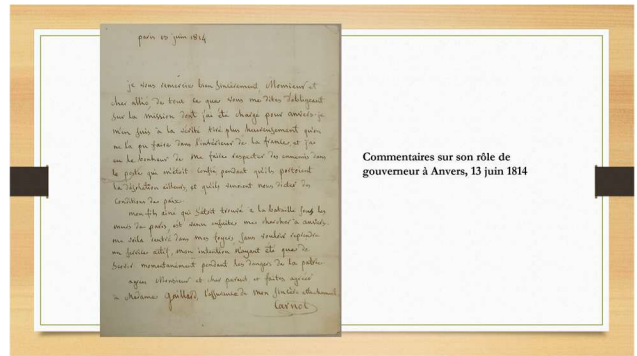 paris 13 juin 1814
je vous remercie bien sincèrement, Monsieur et
cher allié, de tout ce que vous me dites d'obligeant
sur la mission dont j'ai été chargé pour anvers. je
m'en suis à la vérité tiré plus heureusement qu'on
ne l'a pu faire dans l'intérieur de la france, et j'ai
eu le bonheur de me faire respecter des ennemis dans
le poste qui m'étoit confié pendant qu'ils portoient
la désolation ailleurs, et qu'ils venoient nous dicter des
conditions de paix.
mon fils ainé qui s'étoit trouvé a la bataille sous les
murs de paris, est venu ensuite me chercher à anvers.
me voilà rentré dans mes foyers sans vouloir reprendre
un service actif, mon intention n'ayant été que de
servir momentanément pendant les dangers de la patrie.
agréez Monsieur et cher parent et faites agréer
à Madame Gaillard, l'assurance de mon sincère attachement
Carnot
Commentaires sur son rôle de
gouverneur à Anvers, 13 juin 1814